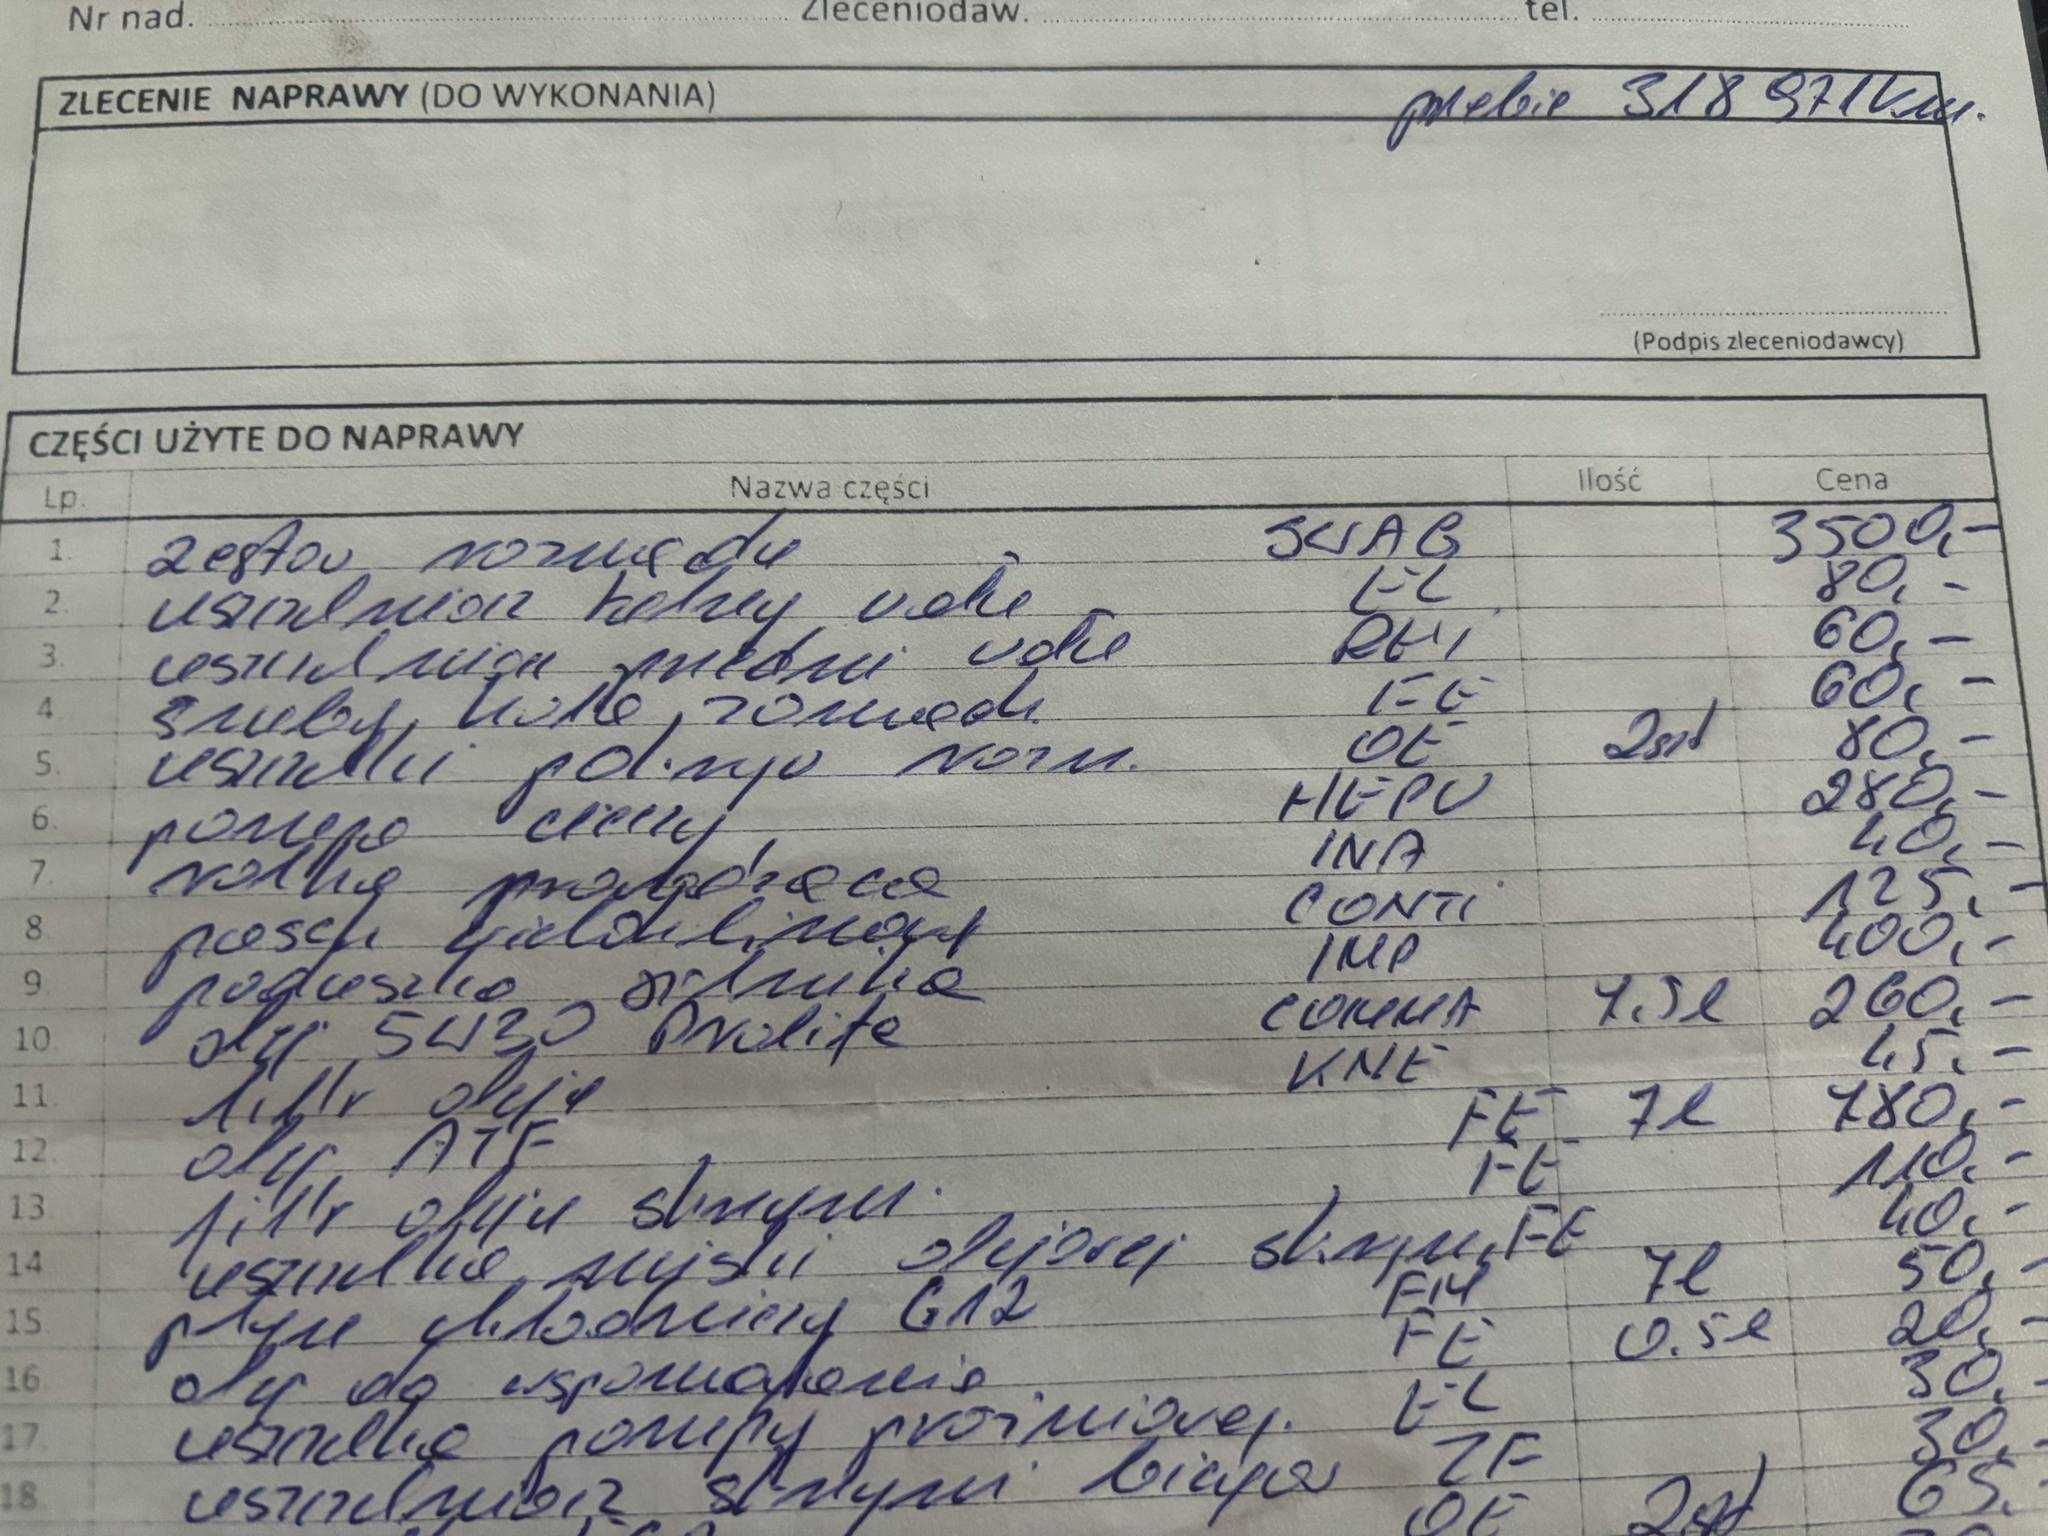 Nr nad. Zleceniodaw. tel.
ZLECENIE NAPRAWY (DO WYKONANIA) przebie 318 971 km.
(Podpis zleceniodawcy)
CZĘŚCI UŻYTE DO NAPRAWY
Lp. Nazwa części Ilość Cena
1. zestaw rozrządu SWAG 3500,-
2. uszczelniacz tylny wału EL 80,-
3. uszczelniacz przedni wału 60,-
4. śruby koła rozrządu FE 60,-
5. uszczelki rozrz. OE 2szt 80,-
6. pompa cieczy HEPU 280,-
7. rolka prowadząca INA 40,-
8 pasek wieloklinowy CONTI 125,-
9 poduszka silnika IMP 400,-
10 olej 5W30 Prolife COMMA 7.5l 260,-
11 filtr oleju KNE 45,-
12. olej ATF FE 7l 780,-
13 filtr oleju skrzyni FE 110,-
14 uszczelka miski olejowej skrzyni FE 40,-
15 płyn chłodniczy G12 7l 50,-
16 olej do wspomagania FE 0.5l 20,-
17. uszczelka pompy próżniowej EL 30,-
18. uszczelniacz skrzyni biegów ZF 30,-
OE 2szt 65,-